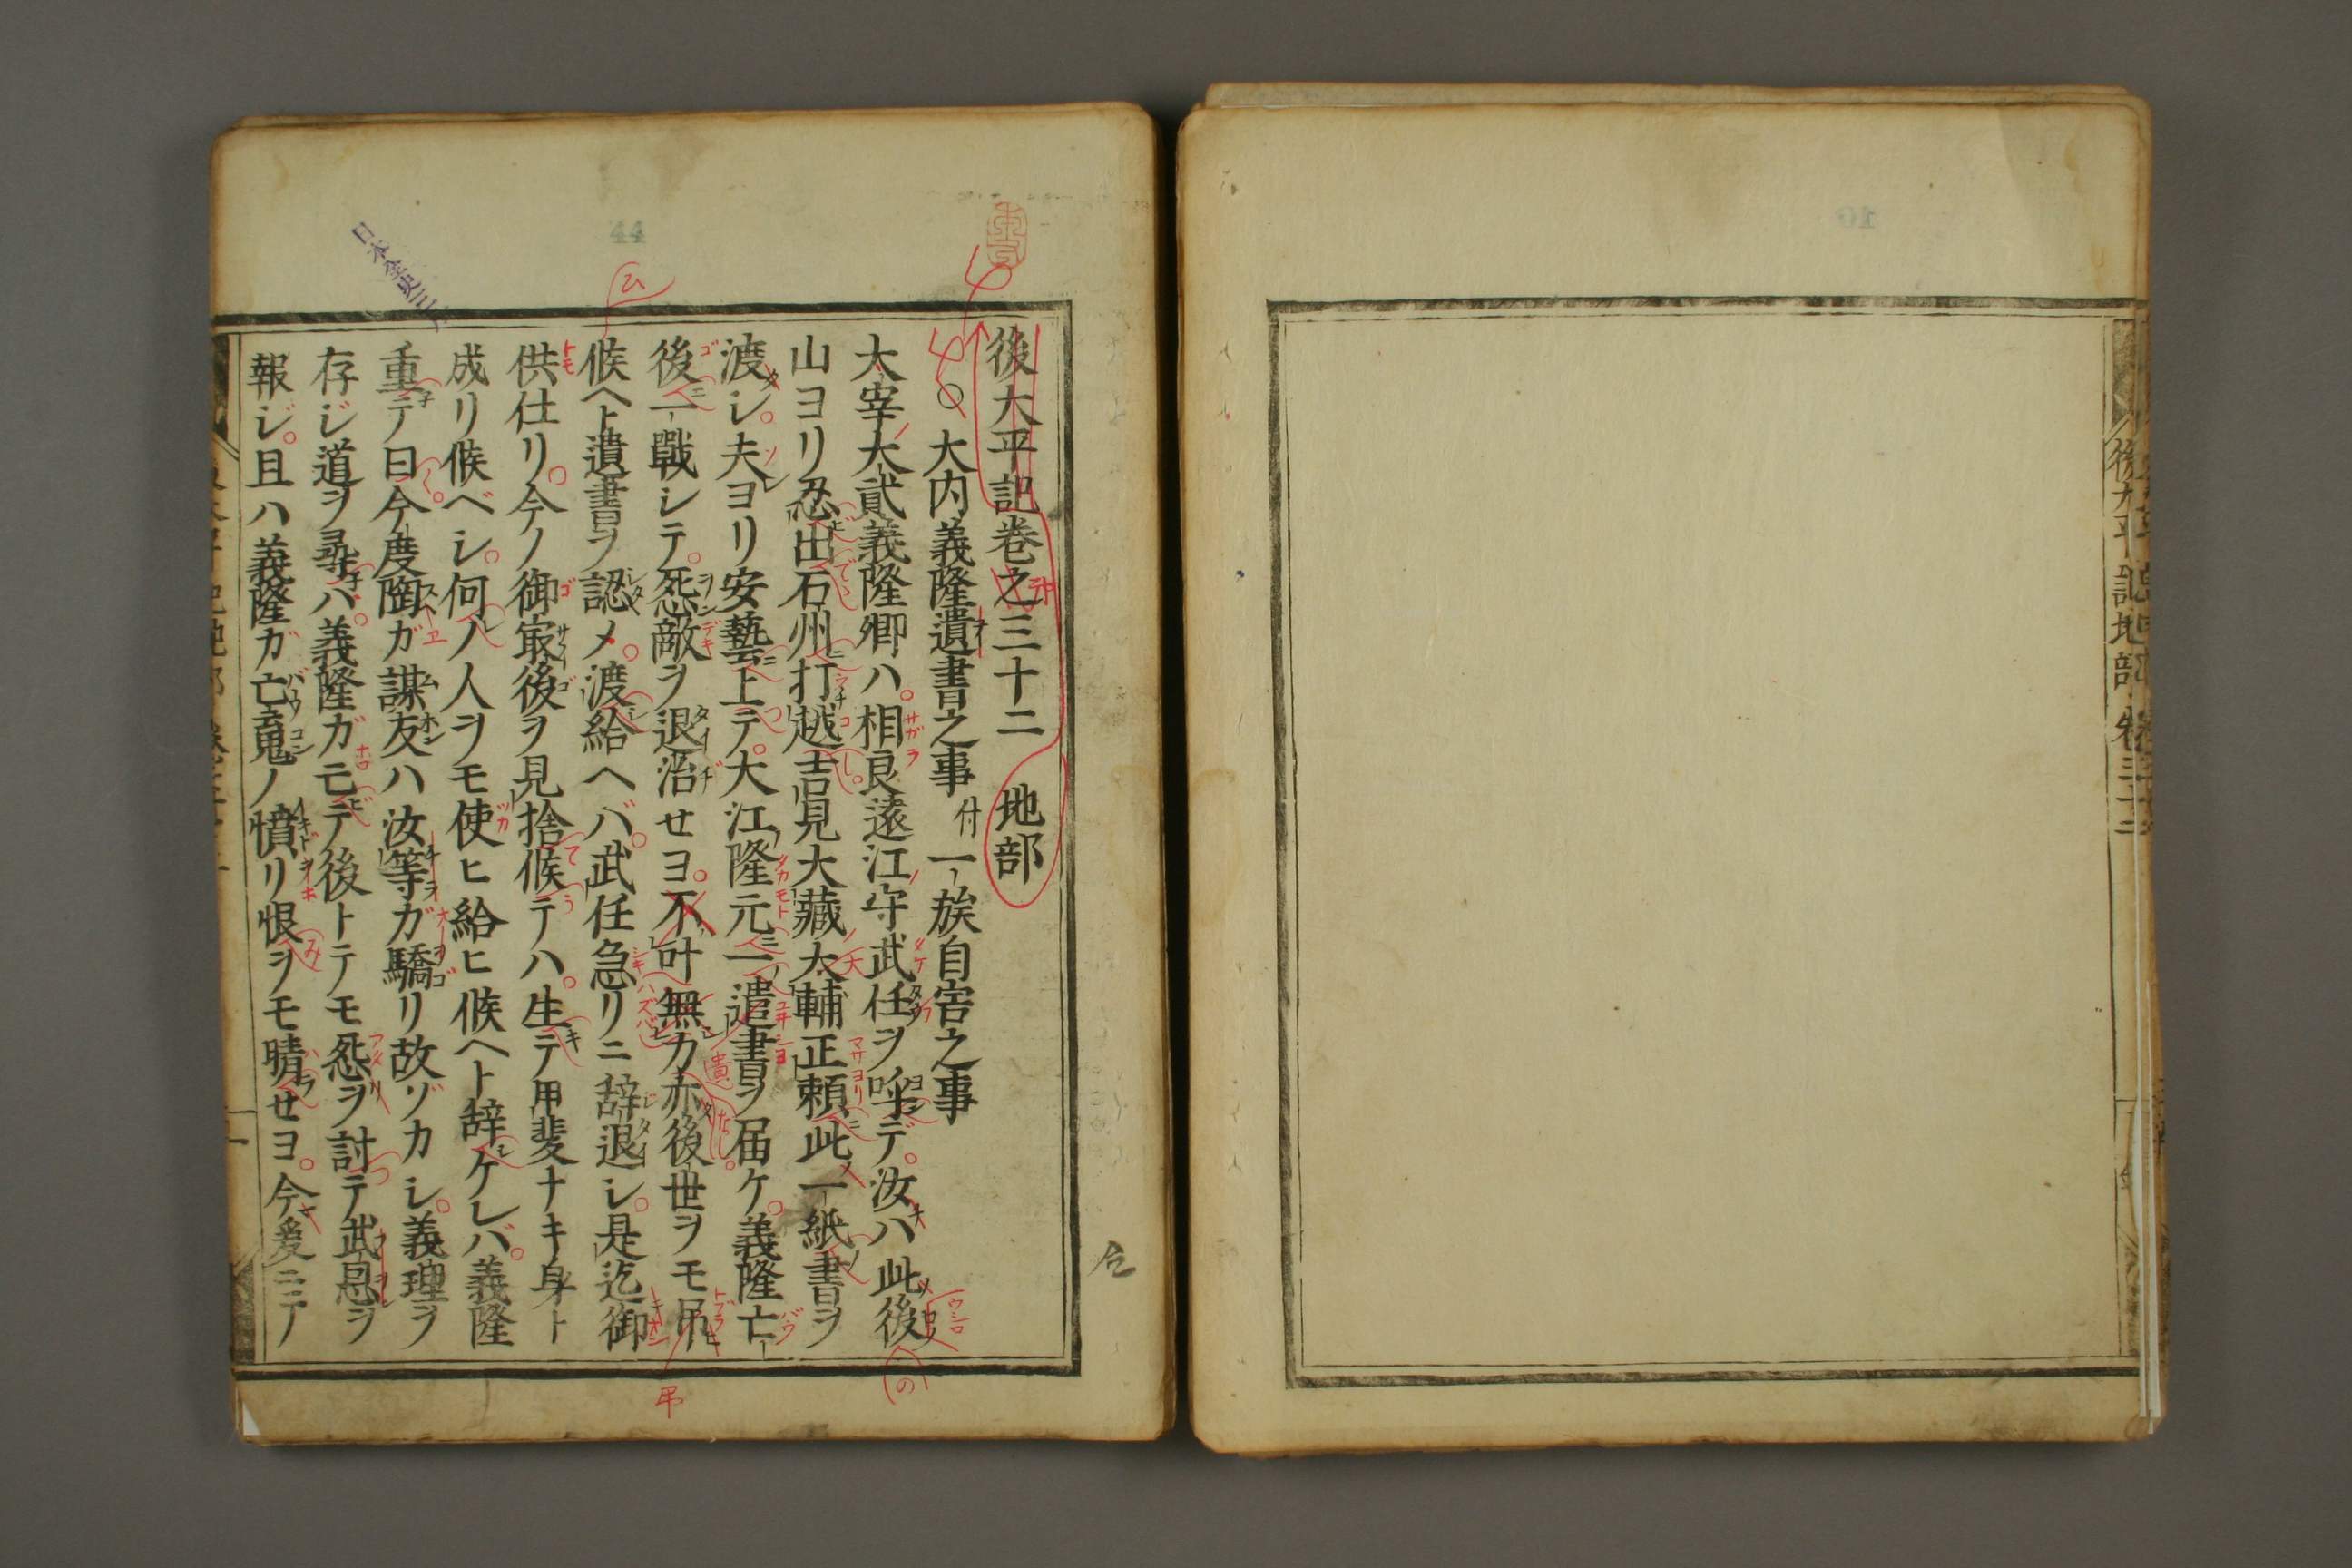 後太平記地部 卷三十二
後太平記卷之三十二 地部
○大内義隆遺書之事 付 一族自害之事
太宰大貳義隆卿ハ相良遠江守武任ヲ呼デ汝ハ此後
山ヨリ忍出石州打越吉見大藏大輔正頼此一紙書ヲ
渡シ夫ヨリ安藝上テ大江隆元一遣書ヲ届ケ義隆亡
後一戰シテ怨敵ヲ退治せヨ不叶無力亦後世ヲモ吊
候ヘト遺書ヲ認メ渡給ヘバ武任急リニ辞退シ是迄御
供仕リ今ノ御最後ヲ見捨候テハ生テ甲斐ナキ身ト
成リ候ベシ何ノ人ヲモ使ヒ給ヒ候ヘト辞ケレバ義隆
重テ曰今度陶ガ謀叛ハ汝等ガ驕リ故ゾカシ義理ヲ
存ジ道ヲ尋バ義隆ガ亡テ後トテモ怨ヲ討テ武恩ヲ
報ジ且ハ義隆ガ亡魂ノ憤リ恨ヲモ晴せヨ今爰ニテ
44